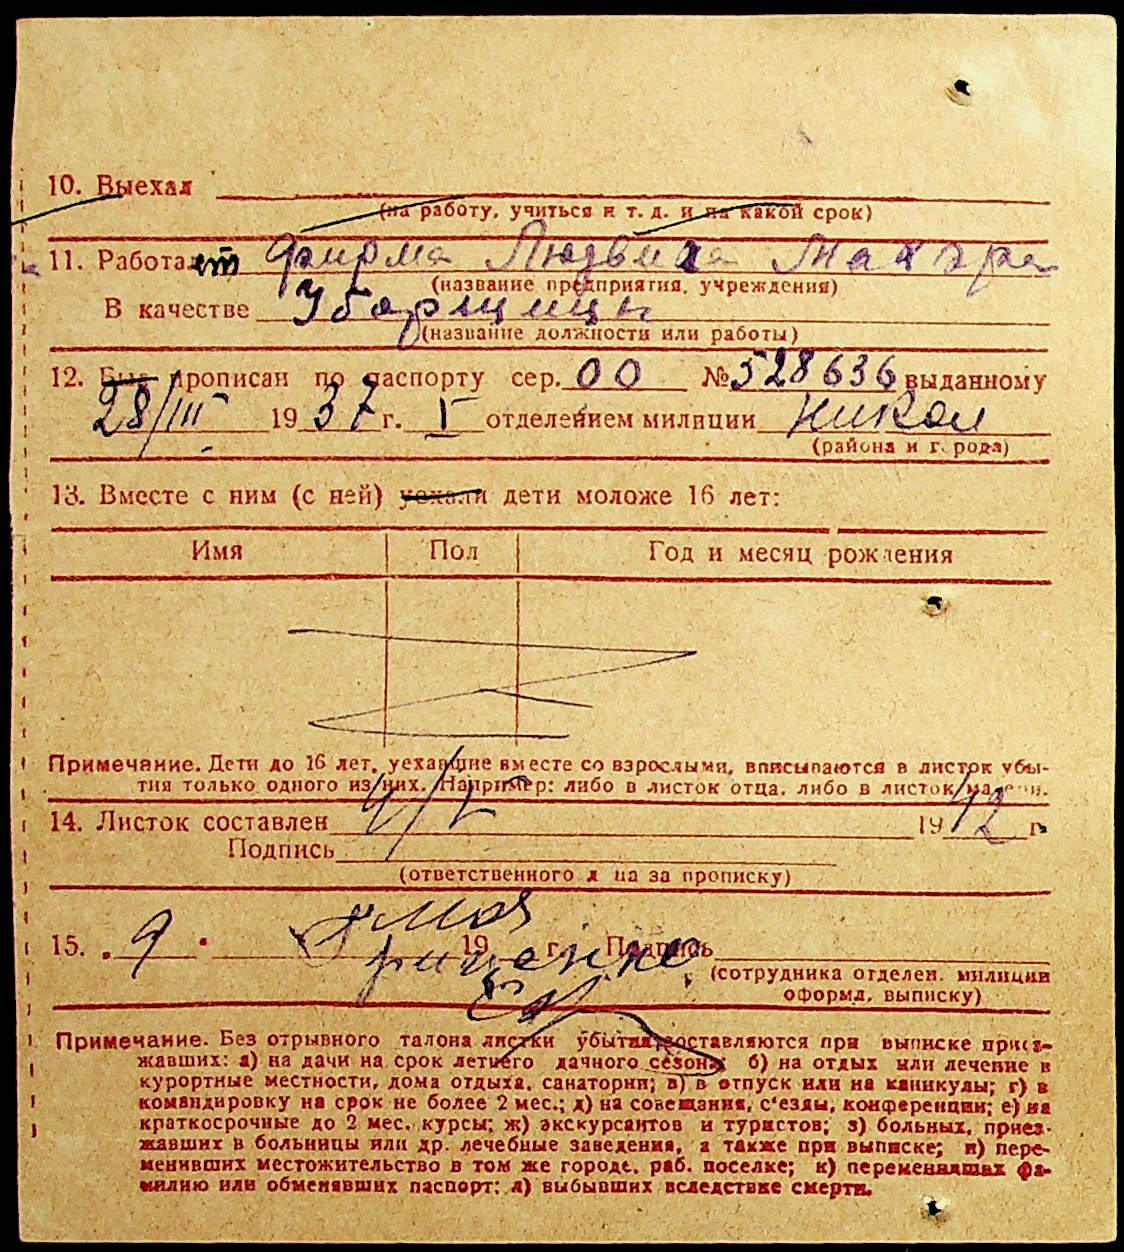 10. Выехал
(на работу, учиться и т. д. и на какой срок)
11. Работает Фирма Людвига
(название предприятия, учреждения)
В качестве Уборщицы
(название должности или работы)
12. Был прописан по паспорту сер. 00 № 528636 выданному
28/III 1937 г. I отделением милиции Никол
(района и города)
13. Вместе с ним (с ней) уехали дети моложе 16 лет:
Имя Пол Год и месяц рождения
Примечание. Дети до 16 лет, уехавшие вместе со взрослыми, вписываются в листок убы-
тия только одного из них. Например: либо в листок отца, либо в листок матери.
14. Листок составлен 4/V 1942 г.
Подпись
(ответственного лица за прописку)
15. „9“ мая 19 г. Подпись
(сотрудника отделен. милиции
оформл. выписку)
Примечание. Без отрывного талона листки убытия составляются при выписке приез-
жавших: а) на дачи на срок летнего дачного сезона; б) на отдых или лечение в
курортные местности, дома отдыха, санатории; в) в отпуск или на каникулы; г) в
командировку на срок не более 2 мес.; д) на совещания, с'езды, конференции; е) на
краткосрочные до 2 мес. курсы; ж) экскурсантов и туристов; з) больных, приез-
жавших в больницы или др. лечебные заведения, а также при выписке; и) пере-
менивших местожительство в том же городе, раб. поселке; к) переменивших фа-
милию или обменявших паспорт; л) выбывших вследствие смерти.